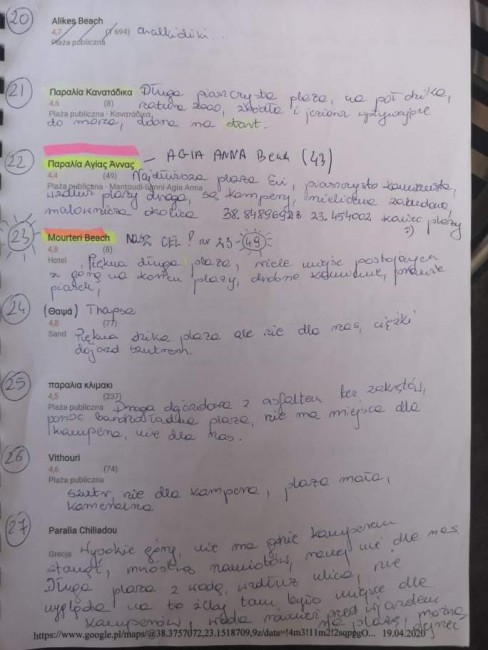 20
Alikes Beach
4,7 (1 694)
Plaża publiczna
21
Παραλία Κανατάδικα Długa piaszczysta plaża, na pół dzika,
4,6 (8) natura 2000, źródła i jeziora
Plaża publiczna · Κανατάδικα
do morza, dobra na start.
22
Παραλία Αγίας Άννας – AGIA ANNA Beach (43)
4,4 (49) Najdłuższa plaża Evi, piaszczysto kamienista,
Plaża publiczna · Mantoudi-Limni-Agia Anna
wzdłuż plaży droga, są kampery, nieliczna zabudowa,
malownicza okolica 38.8489692 23.454002 koniec plaży
23
Mourteri Beach NASZ CEL! nr 23 49
4,8 (8)
Hotel Piękna długa plaża, wiele miejsc postojowych
z górą na końcu plaży, drobne kamienie,
piasek,
24
(Θαψά) Thapsa
4,8 (77)
Sand Piękna dzika plaża ale nie dla nas, ciężki
dojazd szutrem.
25
παραλια κλιμακι
4,5 (237)
Plaża publiczna Droga dojazdowa z asfaltem bez zakrętów,
ponoć bardzo ładna plaża, nie ma miejsca dla
kampera, nie dla nas.
26
Vithouri
4,6 (74)
Plaża publiczna
szutr, nie dla kampera, plaża mała,
kameralna
27
Paralia Chiliadou
Grecja Wysokie góry, nie ma gdzie kamperem
stanąć, mnóstwo namiotów, raczej nie dla nas.
Długa plaża z wodą, wzdłuż ulica, nie
wygląda na to żeby tam było miejsce dla
kamperów, woda również przed wjazdem
na plażę, można
https://www.google.pl/maps/@38.3757072,23.1518709,9z/data=!4m3!11m2!2sqpgO... 19.04.2020